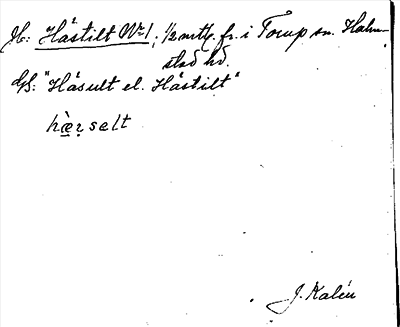 Jb: Håstilt Nr 1, 1/2 mtl. fr. i Torup sn. Halm-
stad hd.
GS: "Håsult el. Håstilt"
hæ̀r̥selt
J. Kalén